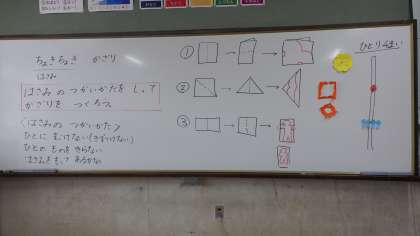 ちょきちょき かざり
はさみ
はさみ の つかいかたを しって
かざりを つくろう。
<はさみの つかいかた>
ひとに むけない(きずつけない)
ひとの ものを きらない
はさみを もって あるかない
①
②
③